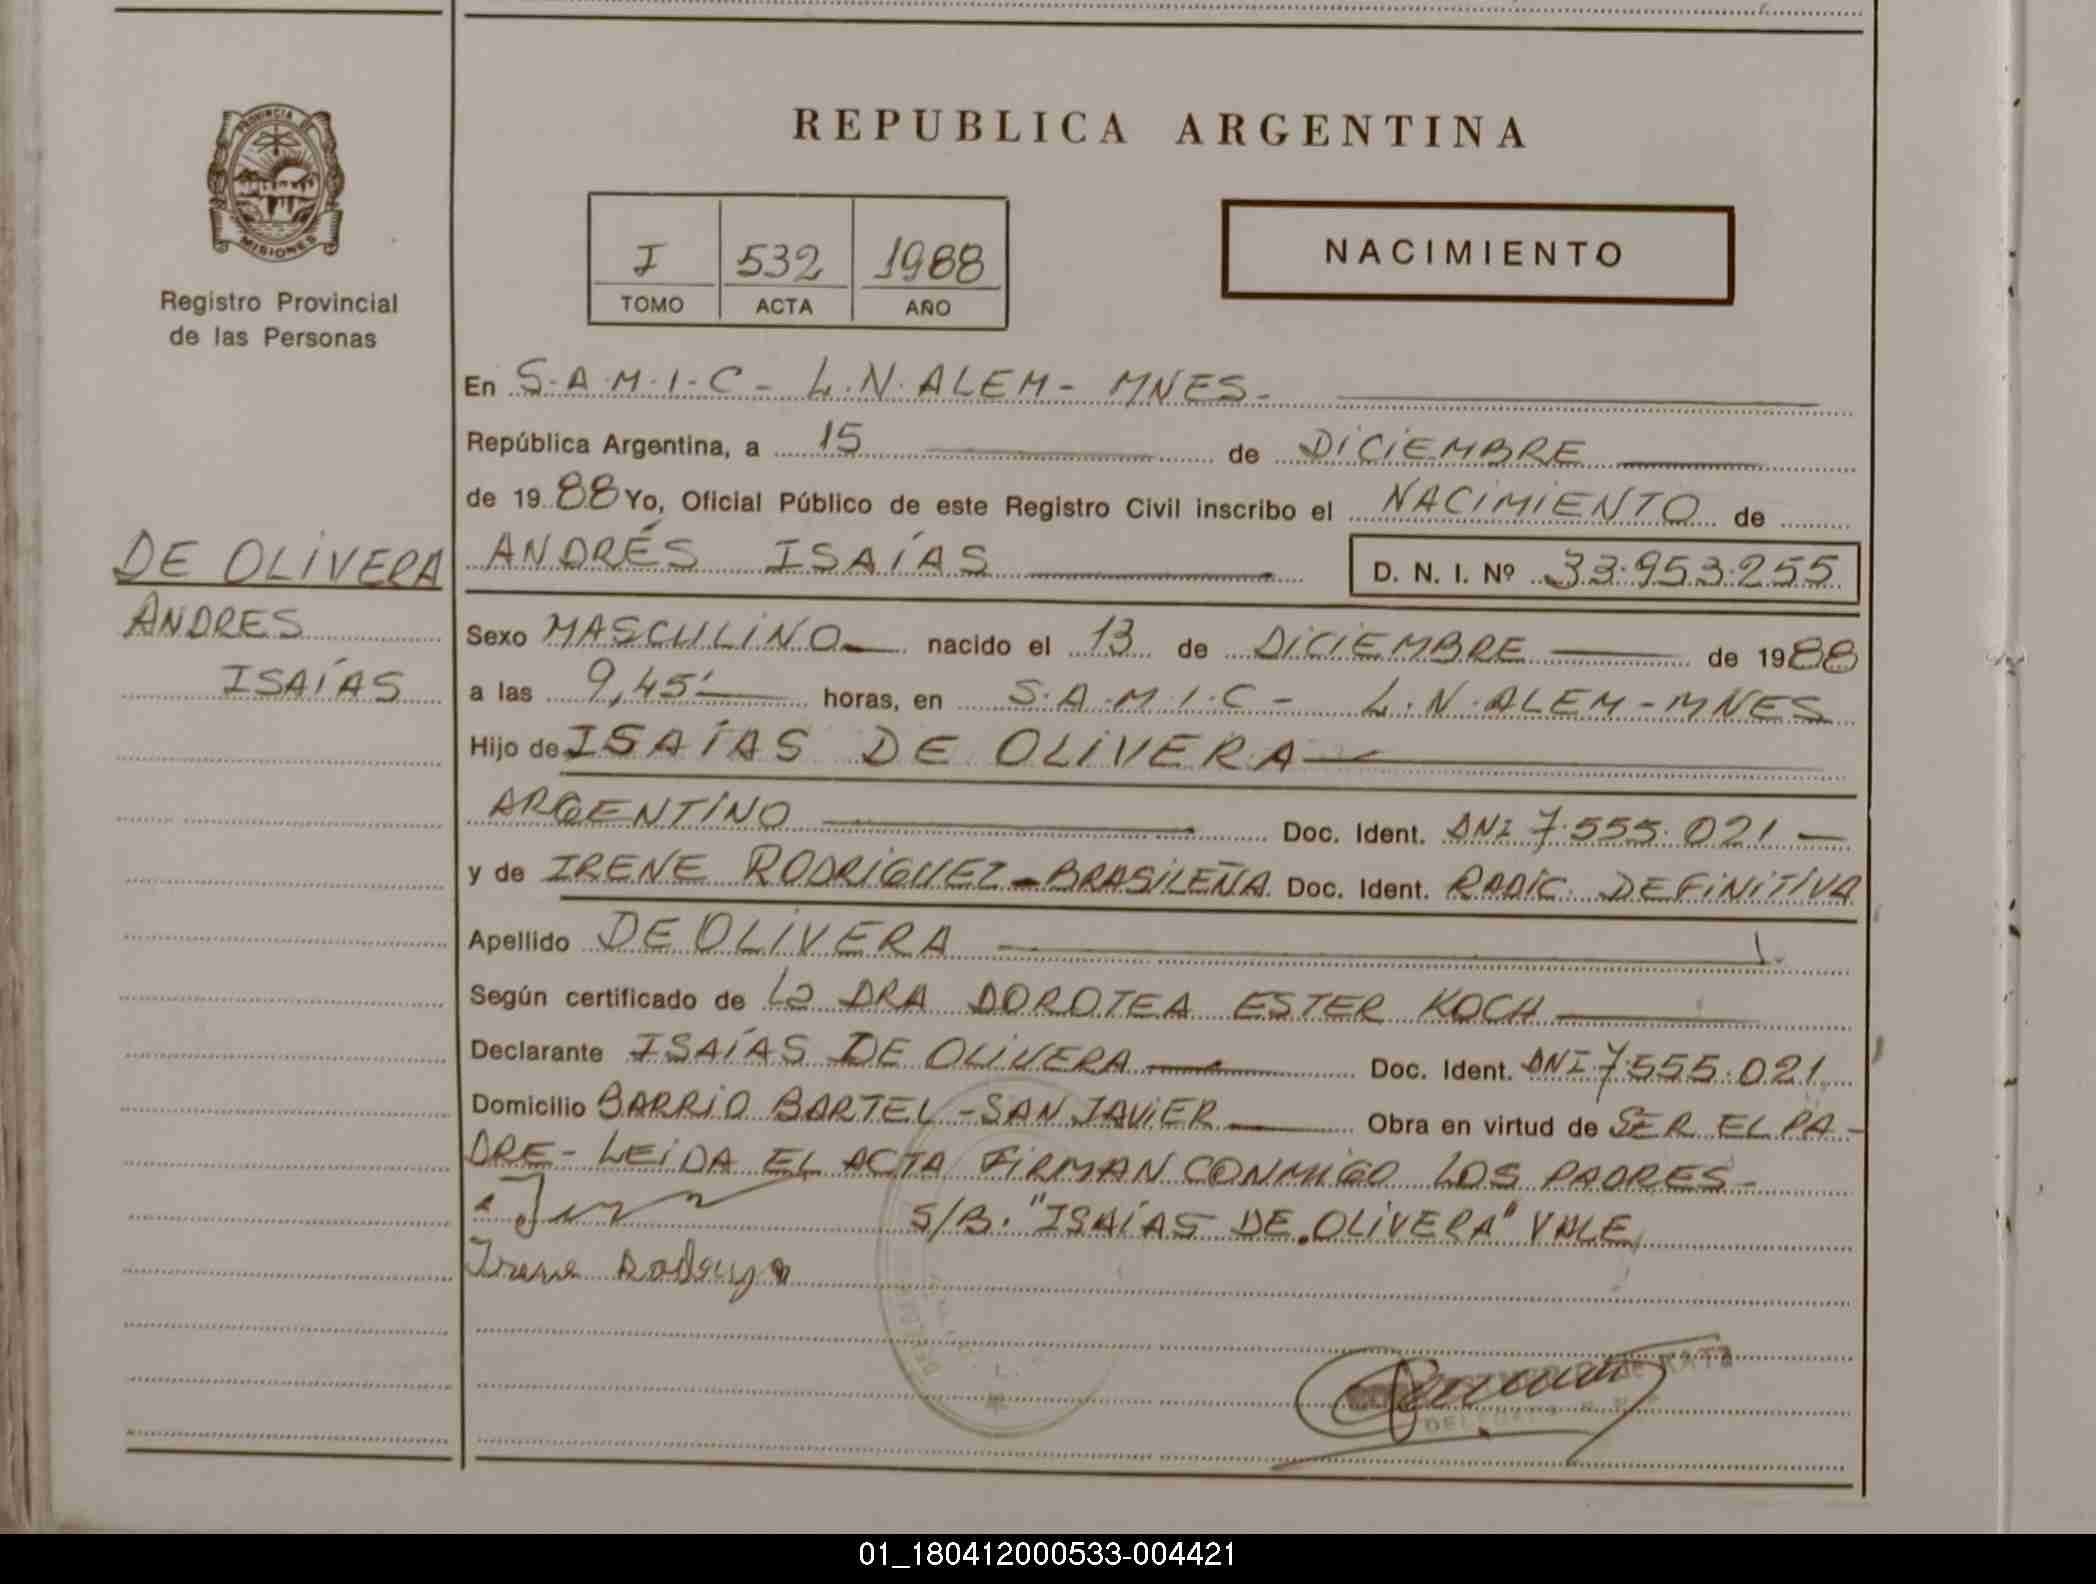 REPUBLICA ARGENTINA
PROVINCIA DE
MISIONES
Registro Provincial
de las Personas
I 532 1988
TOMO ACTA AÑO
NACIMIENTO
En S.A.M.I.C - L.N.ALEM - MNES -
República Argentina, a 15 de DICIEMBRE
de 1988 Yo, Oficial Público de este Registro Civil inscribo el NACIMIENTO de
ANDRÉS ISAÍAS D. N. I. Nº 33.953.255
DE OLIVERA
ANDRES
ISAÍAS
Sexo MASCULINO nacido el 13 de DICIEMBRE de 1988
a las 9,45' horas, en S.A.M.I.C - L.N.ALEM - MNES
Hijo de ISAÍAS DE OLIVERA
ARGENTINO Doc. Ident. DNI 7.555.021
y de IRENE RODRIGUEZ - BRASILEÑA Doc. Ident. RADIC. DEFINITIVA
Apellido DE OLIVERA
Según certificado de La DRA DOROTEA ESTER KOCH
Declarante ISAÍAS DE OLIVERA Doc. Ident. DNI 7.555.021
Domicilio BARRIO BARTEL - SAN JAVIER Obra en virtud de SER EL PA-
DRE - LEIDA EL ACTA FIRMAN CONMIGO LOS PADRES -
S/B. "ISAÍAS DE OLIVERA" VALE
Irene
01_180412000533-004421